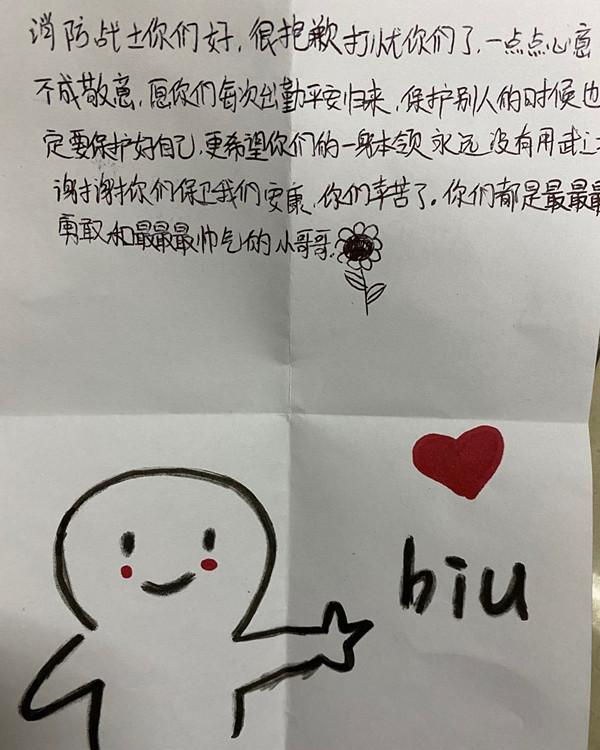 消防战士你们好，很抱歉打忧你们了，一点点心意
不成敬意，愿你们每次出勤平安归来，保护别人的时候也
定要保护好自己，更希望你们的一身本领永远没有用武之
谢谢你们保卫我们安康，你们辛苦了。你们都是最最最
勇敢和最最最帅气的小哥哥.
biu